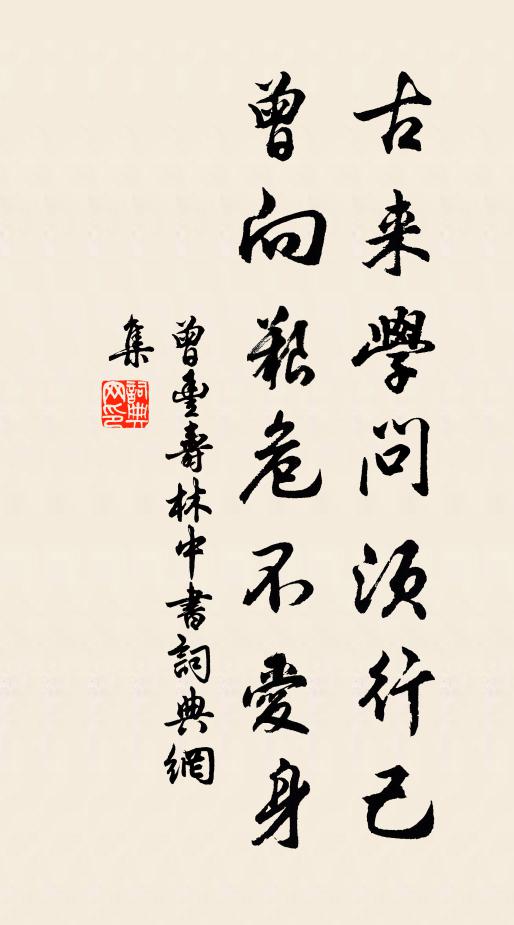 古来學問須行己
曾向艱危不愛身
曾豐壽林中書詞典網
集
詞典
网印